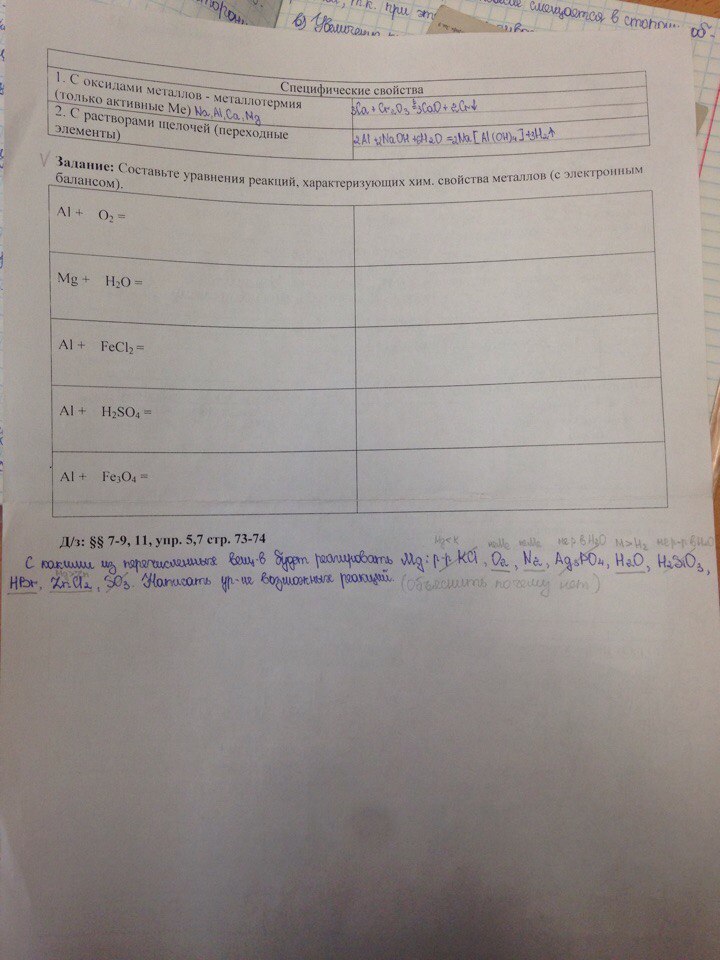 смещается в сторону об-
, т.к. при эт
в) Увеличение
Специфические свойства
1. С оксидами металлов - металлотермия
(только активные Ме) Na, Al, Ca, Mg
3Ca + Cr₂O₃ = 3CaO + 2Cr↓
2. С растворами щелочей (переходные
элементы)
2Al + 2NaOH + 6H₂O = 2Na[Al(OH)₄] + 3H₂↑
V Задание: Составьте уравнения реакций, характеризующих хим. свойства металлов (с электронным
балансом).
Al + O₂ =
Mg + H₂O =
Al + FeCl₂ =
Al + H₂SO₄ =
Al + Fe₃O₄ =
Д/з: §§ 7-9, 11, упр. 5,7 стр. 73-74
Mg<K неМе неМе нер в H₂O М>H₂ не р-р в H₂O
С какими из перечисленных вещ-в будет реагировать Mg: р-р KCl, O₂, N₂, Ag₃PO₄, H₂O, H₂SiO₃,
HBr, ZnCl₂, SO₃. Написать ур-ие возможных реакций. (объяснить почему нет)